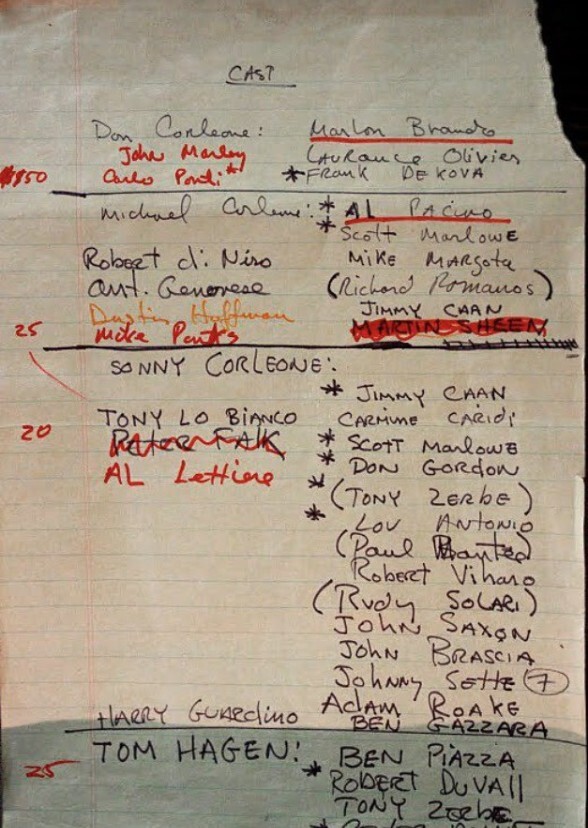 CAST
Don Corleone: Marlon Brando
John Marley Laurance Olivier
$150 Carlo Ponti* *FRANK DE KOVA
Michael Corleone: * AL PACINO
* Scott MARLOWE
Robert di Niro MiKE MARGOTA
Ant. Genovese (Richard Romanos)
Dustin Hoffman JIMMY CAAN
25 Mike Parks MARTIN SHEEN
SONNY CORLEONE:
* JIMMY CAAN
TONY LO BIANCO CARMINE CARIDI
20 Peter FALK * SCOTT MARLOWE
AL Lettiere * DON GORDON
* (TONY ZERBE)
* LOU ANTONIO
(Paul)
Robert Viharo
(RUDY SOLARI)
JOHN SAXON
JOHN BRASCIA
Johnny SETTE 7
Adam ROAKE
HARRY GUARDINO BEN GAZZARA
TOM HAGEN: BEN PIAZZA
25 * Robert DUVAll
TONY ZERBE
*